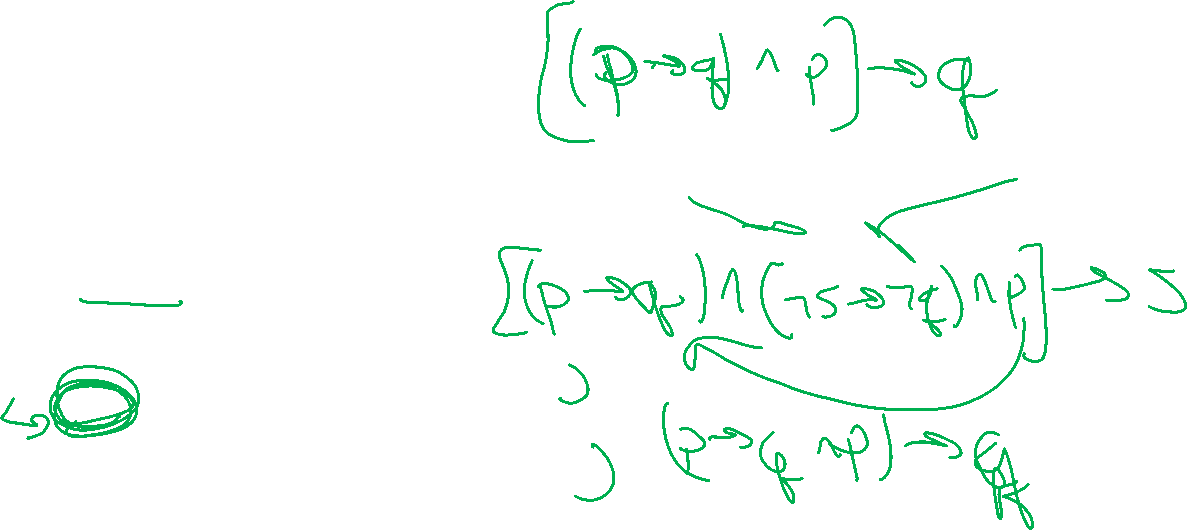 [(p→q) ∧ p] → q
[(p→q) ∧ (¬s→¬q) ∧ p] → s
(p→q ∧ p) → q